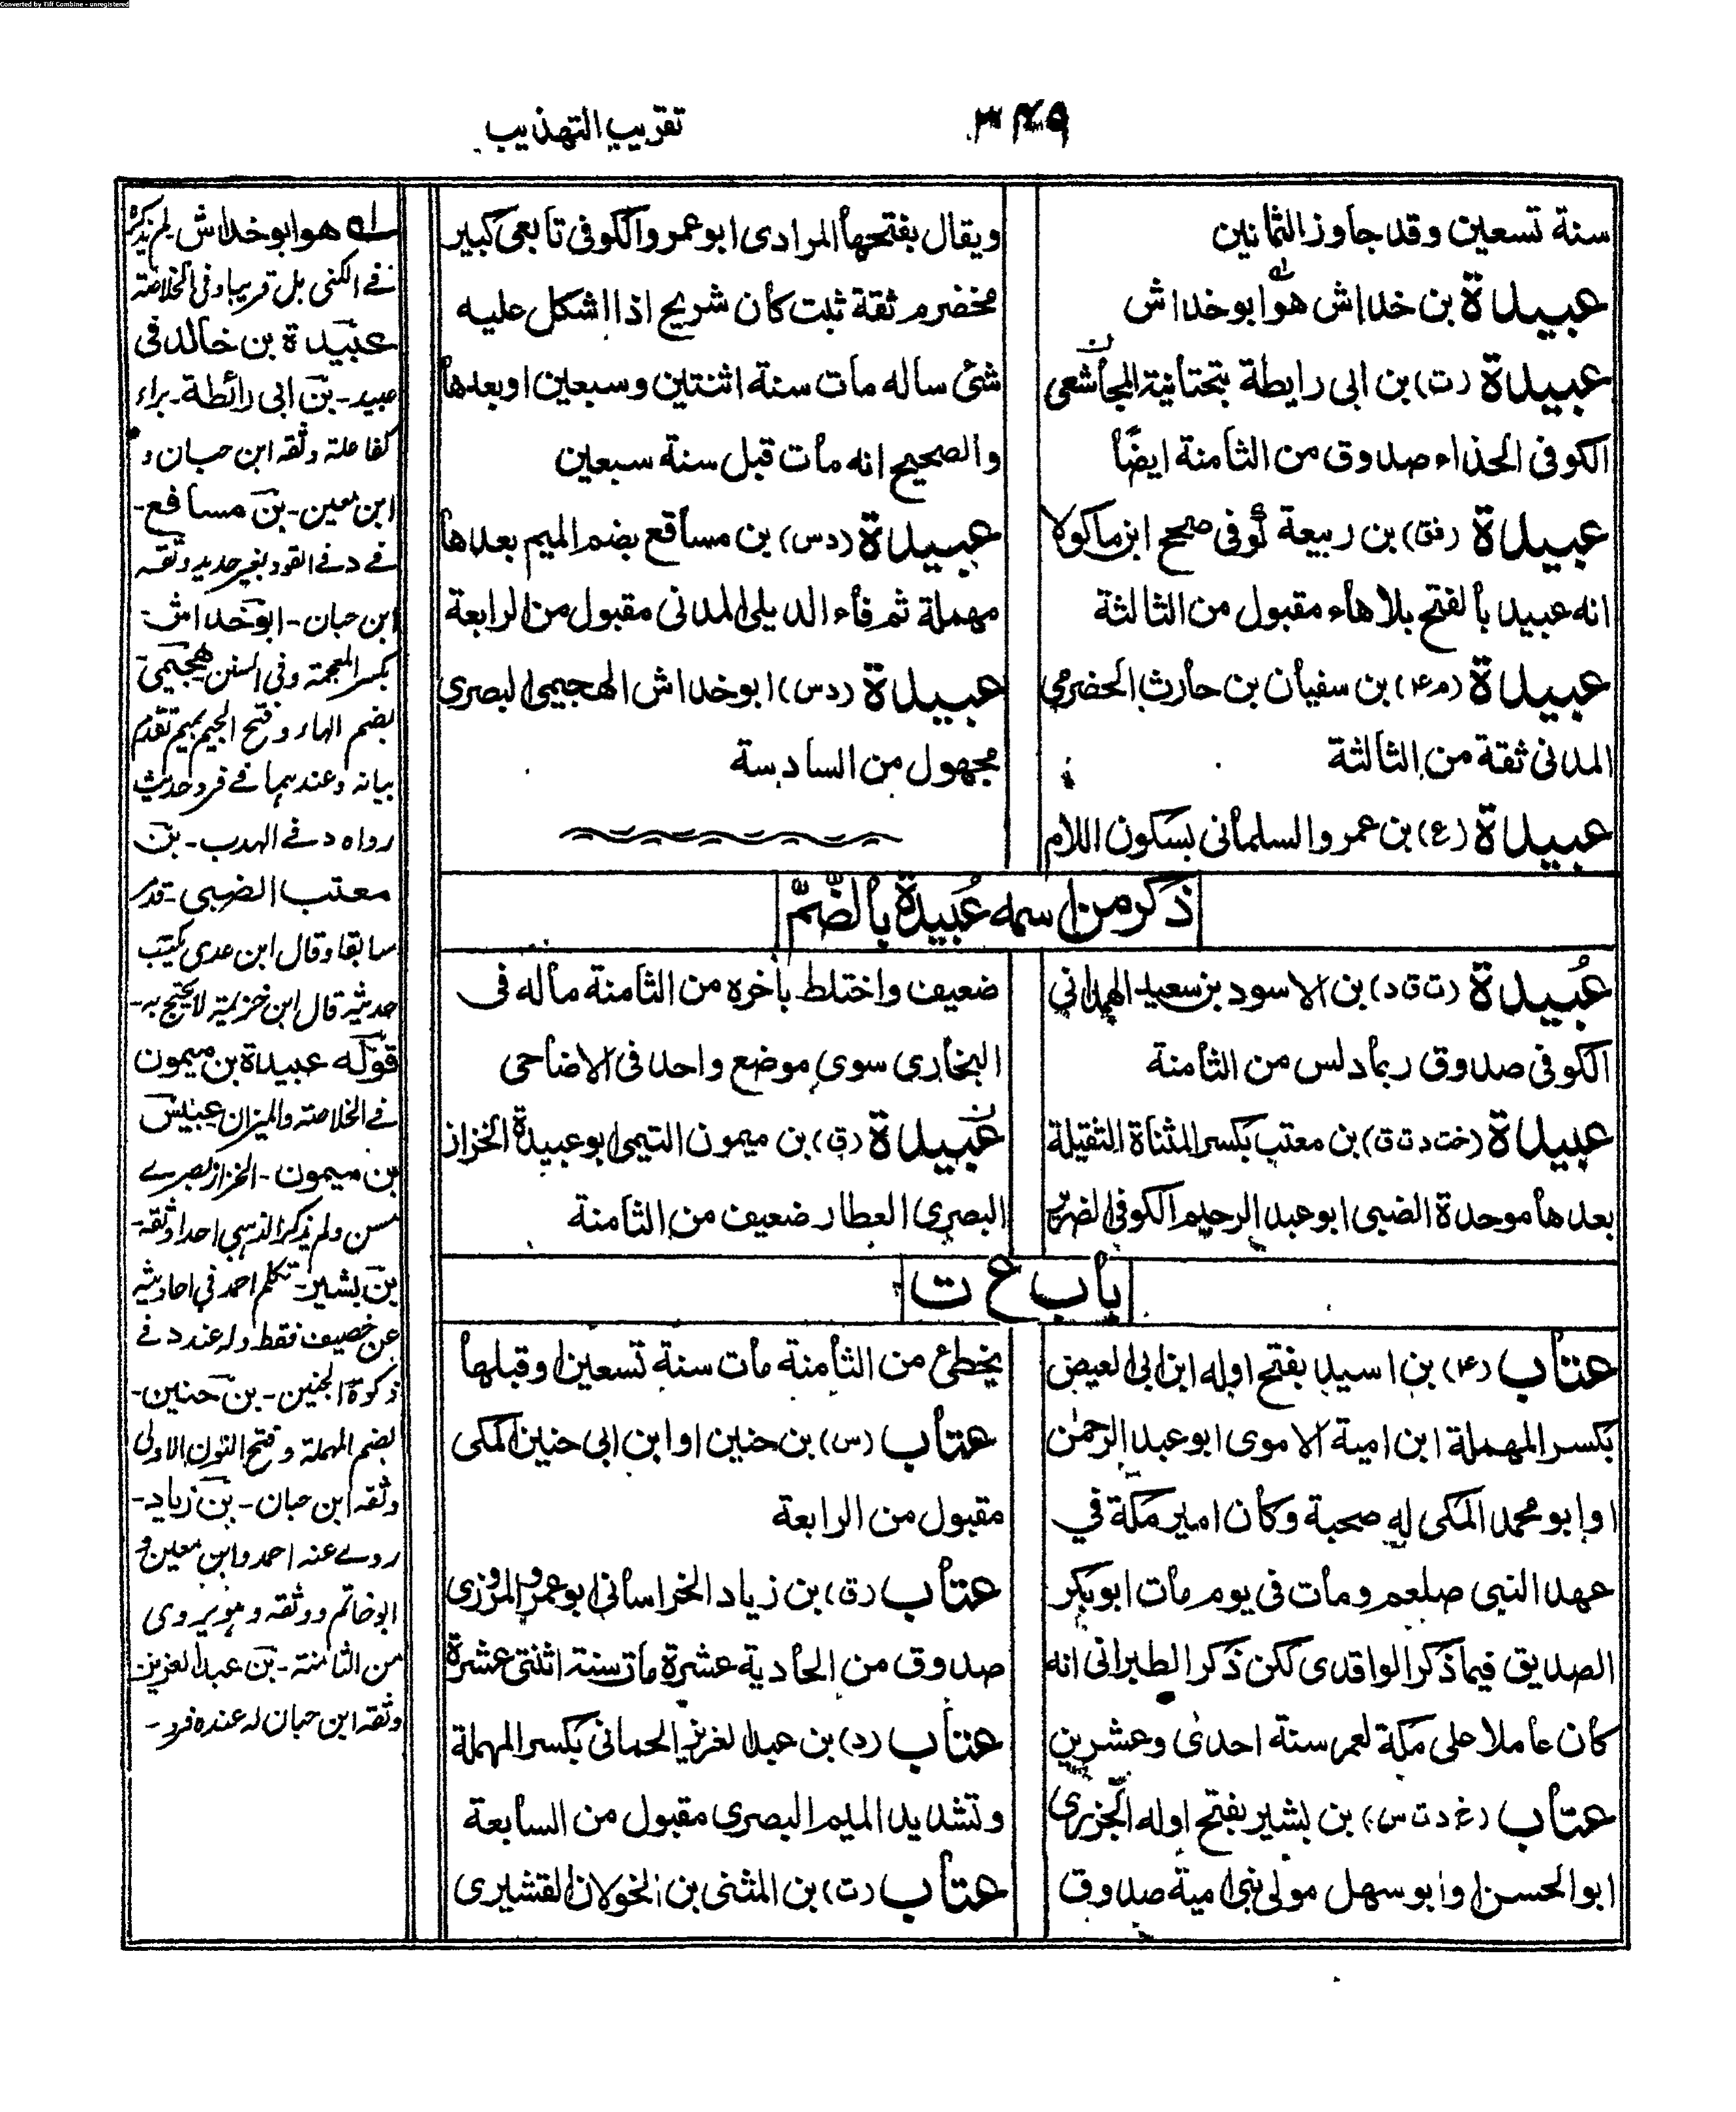 Converted by Tiff Combine - unregistered
٣٤٩
تقريب التهذيب
سنة تسعين وقد جاوز الثمانين
عبيدة بن خداش هو ابو خداش
عبيدة (ت) بن ابى رايطة بتحتانية المجاشعى
الكوفى الحذاء صدوق من الثامنة ايضًا
عبيدة (فق) بن ربيعة كوفى صحح ابن ماكولا
انه عبيد بالفتح بلا هاء مقبول من الثالثة
عبيدة (م۴) بن سفيان بن حارث الحضرمي
المدنى ثقة من الثالثة
عبيدة (ع) بن عمرو السلمانى بسكون اللام
ويقال بفتحها المرادى ابو عمرو الكوفى تابعى كبير
مخضرم ثقة ثبت كان شريح اذا اشكل عليه
شئ ساله مات سنة اثنتين وسبعين او بعدها
والصحيح انه مات قبل سنة سبعين
عبيدة (دس) بن مسافع بضم الميم بعدها
مهملة ثم فاء الديلى المدنى مقبول من الرابعة
عبيدة (دس) ابو خداش الهجيمى البصرى
مجهول من السادسة
ذكر من اسمه عُبيدة بالضّمّ
عُبيدة (ت ق د) بن الاسود بن سعيد الهمدانى
الكوفى صدوق ربما دلس من الثامنة
عبيدة (خت د ت ق) بن معتب بكسر المثناة الثقيلة
بعدها موحدة الضبى ابو عبد الرحيم الكوفى الضرير
ضعيف واختلط بأخره من الثامنة ماله فى
البخارى سوى موضع واحد فى الاضاحى
عبيدة (ق) بن ميمون التيمى ابو عبيدة الخزاز
البصرى العطار ضعيف من الثامنة
باب ع ت
عتاب (۴) بن اسيد بفتح اوله ابن ابى العيص
بكسر المهملة ابن امية الاموى ابو عبد الرحمٰن
او ابو محمد المكى له صحبة وكان امير مكة في
عهد النبى صلعم ومات فى يوم مات ابو بكر
الصديق فيما ذكر الواقدى لكن ذكر الطبرانى انه
كان عاملا على مكة لعمر سنة احدى وعشرين
عتاب (خ د ت س) بن بشير بفتح اوله الجزرى
ابو الحسن او ابو سهل مولى بنى امية صدوق
يخطئ من الثامنة مات سنة تسعين او قبلها
عتاب (س) بن حنين او ابن ابى حنين المكى
مقبول من الرابعة
عتاب (ق) بن زياد الخراسانى ابو عمرو المروزى
صدوق من الحادية عشرة مات سنة اثنتى عشرة
عتاب (د) بن عبد العزيز الحمانى بكسر المهملة
وتشديد الميم البصرى مقبول من السابعة
عتاب (ت) بن المثنى بن الخولان القشيرى
له هو ابو خداش لم يذكره
في الكنى بل قريبا وفى الخلاصة
عبيدة بن خالد فى
عبيد - بن ابى رائطة - براء
كفاعلة وثقه ابن حبان و
ابن معين - بن مسافع -
في د في القود بغير حديد وثقه
ابن حبان - ابو خداش
بكسر المعجمة وفى السنن هجيمى
بضم الهاء وفتح الجيم بميم تقدم
بيانه وعندهما في فرد حديث
رواه د في الهدب - بن
معتب الضبى - قدم
سابقا وقال ابن عدى يكتب
حديثه قال ابن خزيمة لا يحتج به -
قوله عبيدة بن ميمون
في الخلاصة والميزان عبيس
بن ميمون - الخزاز بصرى
مسن ولم يذكر الذهبى احدا وثقه -
بن بشير - تكلم احمد في احاديثه
عن خصيف فقط وله عند د في
ذكوة الجنين - بن حنين -
بضم المهملة وفتح النون الاولى
وثقه ابن حبان - بن زياد -
روى عنه احمد وابن معين و
ابو حاتم ووثقه وهو يروى
من الثامنة - بن عبد العزيز
وثقه ابن حبان له عنده فرد -